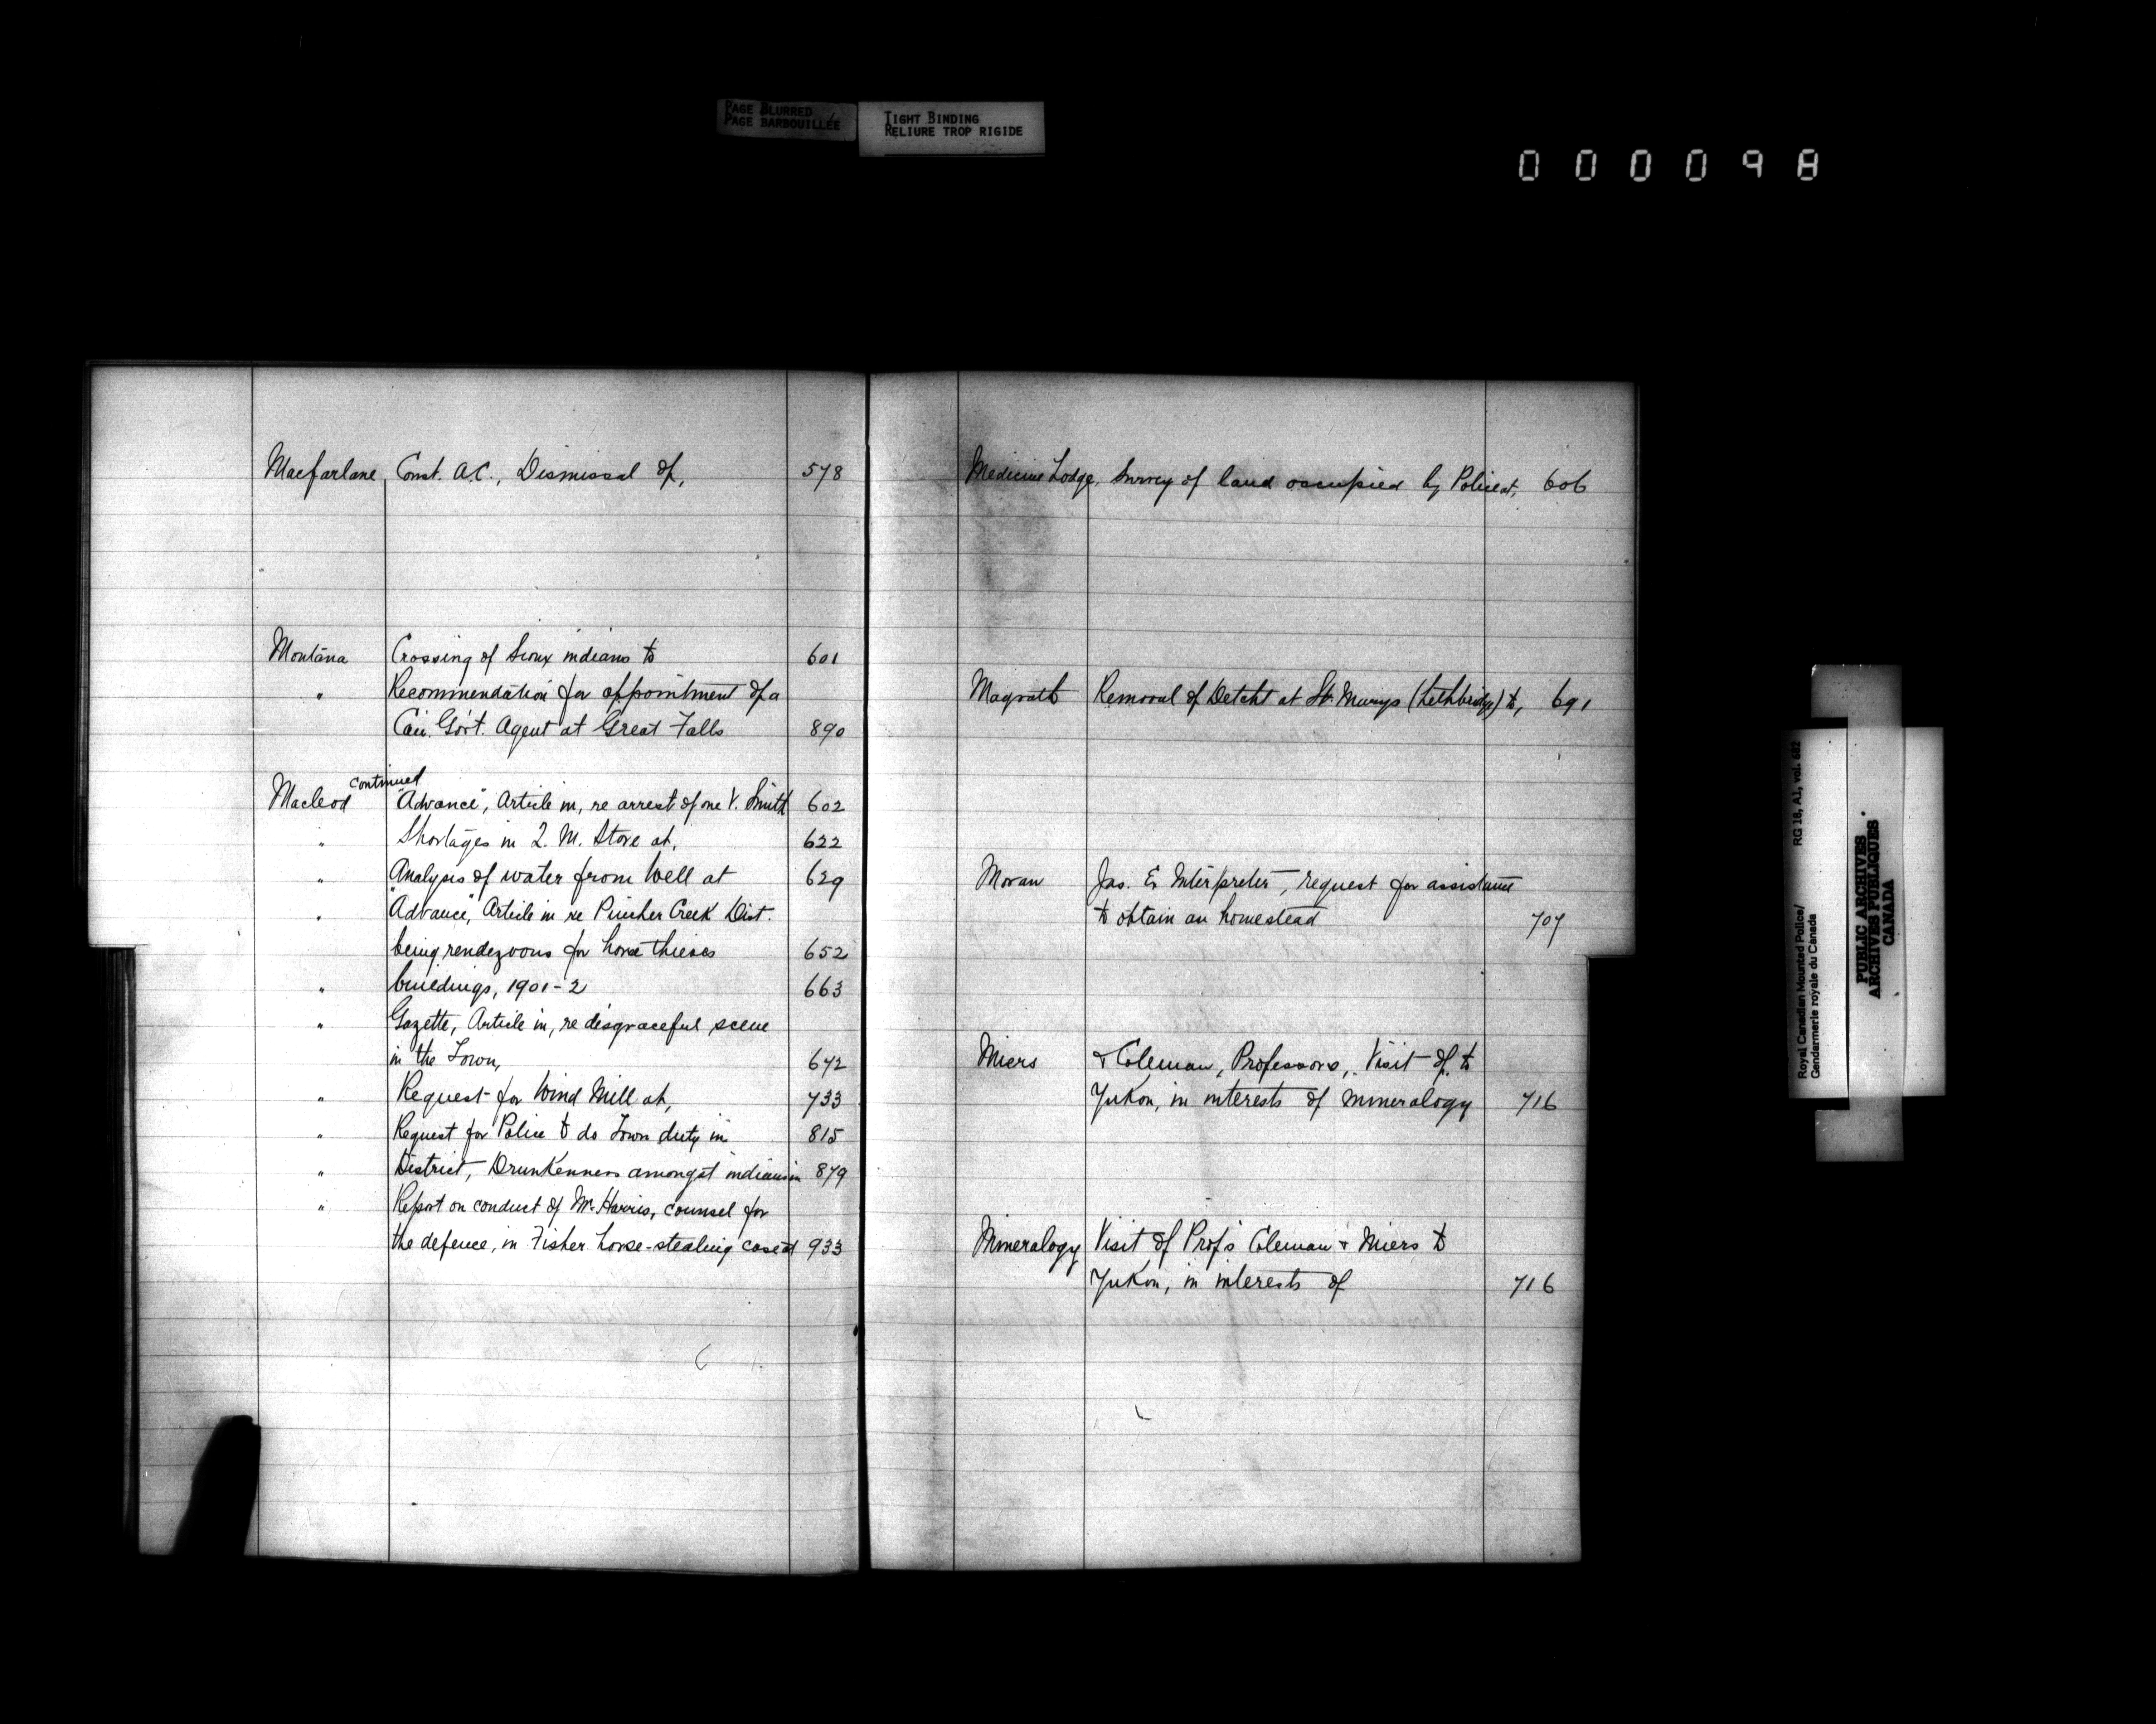 PAGE BLURRED
PAGE BARBOUILLÉE
TIGHT BINDING
RELIURE TROP RIGIDE
000098
Macfarlane, Const. A.C., Dismissal of, 578
Montana Crossing of Sioux indians to 601
" Recommendation for appointment of a
Can. Gov't. Agent at Great Falls 890
continued
Macleod "Advance", Article in, re arrest of one V. Smith 602
" Shortages in Q. M. Store at, 622
" Analysis of water from Well at 629
" "Advance", Article in re Pincher Creek Dist.
being rendezvous for horse thieves 652
" buildings, 1901-2 663
" Gazette, Article in, re disgraceful scene
in the Town, 672
" Request for Wind Mill at, 733
" Request for Police to do Town duty in 815
" District, Drunkenness amongst indians in 879
" Report on conduct of Mr. Harris, counsel for
the defence, in Fisher horse-stealing case at 933
Medicine Lodge, Survey of land occupied by Police at, 606
Magrath Removal of Detcht at St. Marys (Lethbridge) to, 691
Moran Jas. Ex Interpreter, request for assistance
to obtain an homestead 707
Miers & Coleman, Professors, Visit of, to
Yukon, in interests of mineralogy 716
Mineralogy Visit of Prof's Coleman & Miers to
Yukon, in interests of 716
Royal Canadian Mounted Police/
Gendarmerie royale du Canada
RG 18, A1, vol. 682
PUBLIC ARCHIVES
ARCHIVES PUBLIQUES
CANADA